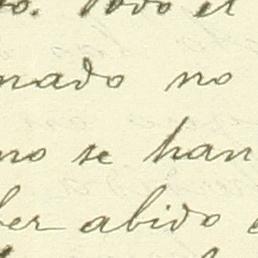 o. Todo el
nado no
no se han
ber abido